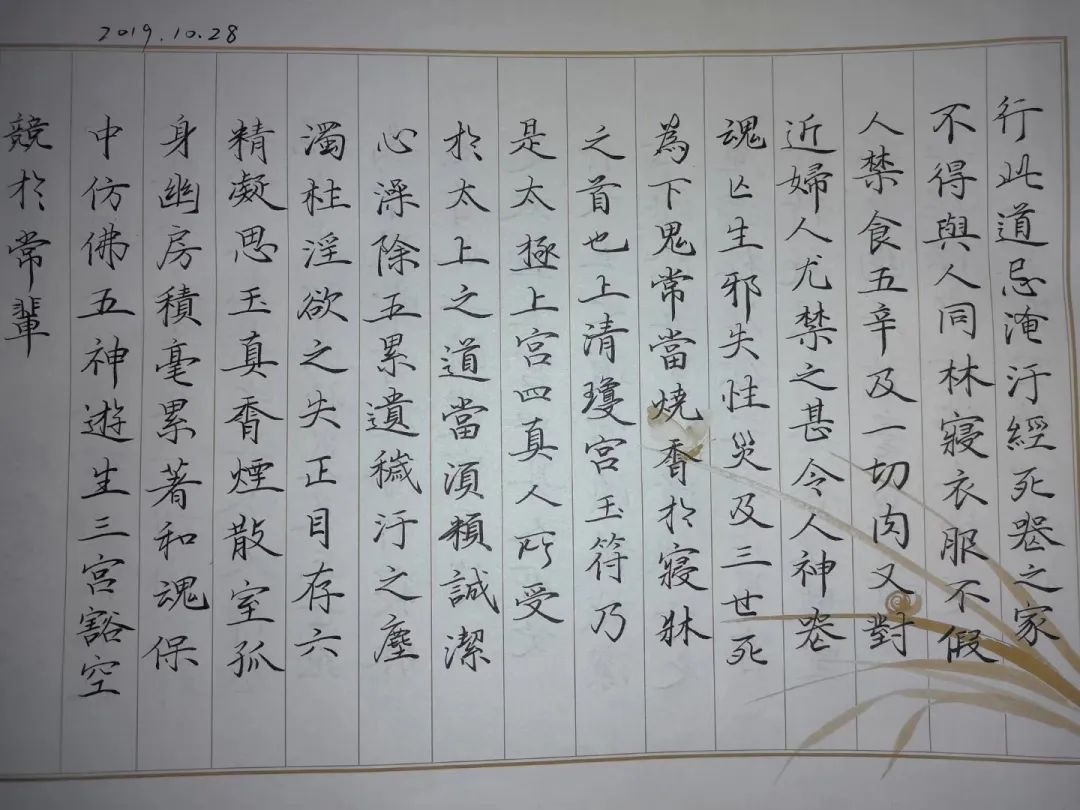 2019.10.28
行此道忌淹汙經死喪之家
不得與人同牀寢衣服不假
人禁食五辛及一切肉又對
近婦人尤禁之甚令人神喪
魂亡生邪失性災及三世死
為下鬼常當燒香於寢牀
之首也上清瓊宮玉符乃
是太極上宮四真人所受
於太上之道當須精誠潔
心澡除五累遺穢汙之塵
濁杜淫欲之失正目存六
精凝思玉真香煙散室孤
身幽房積毫累著和魂保
中仿佛五神遊生三宮豁空
競於常輩